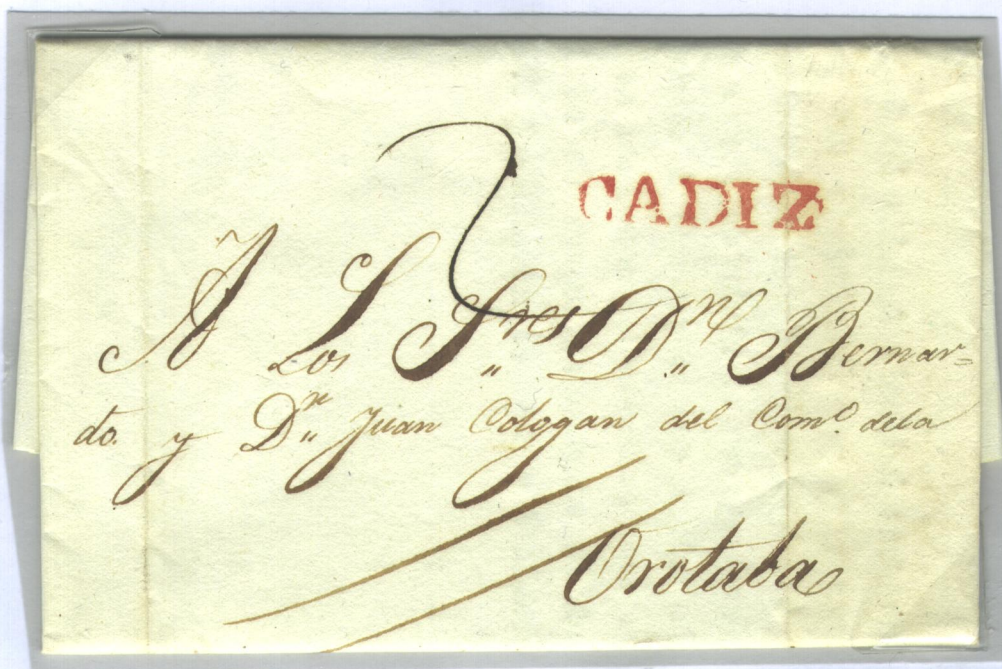 CADIZ
A Los S.res D.n Bernar=
do. y D.n Juan Cologan del Com.o dela
Orotaba